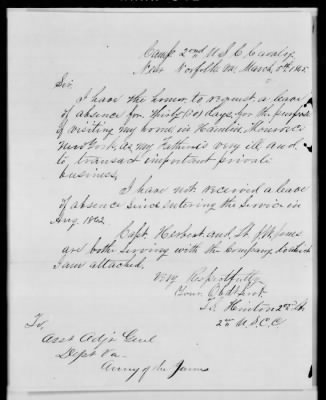 Camp 2nd U S C Cavalry
Near Norfolk Va, March 8th 1865
Sir
I have the honor to request a leave
of absence for thirty (30) days, for the purpose
of visiting my home in Hamlin, Monroe Co
New York, as my Father is very ill and
to transact important private
business,
I have not received a leave
of absence since entering the service in
Aug. 1862
Capt. Herbert and Lt. Jones
are both serving with the Company to which
I am attached.
Very Respectfully
Your Obdt Servt
Hinton 2nd Lt
2nd U.S.C.C
To,
Asst Adjt Genl
Dept Va
Army of the James